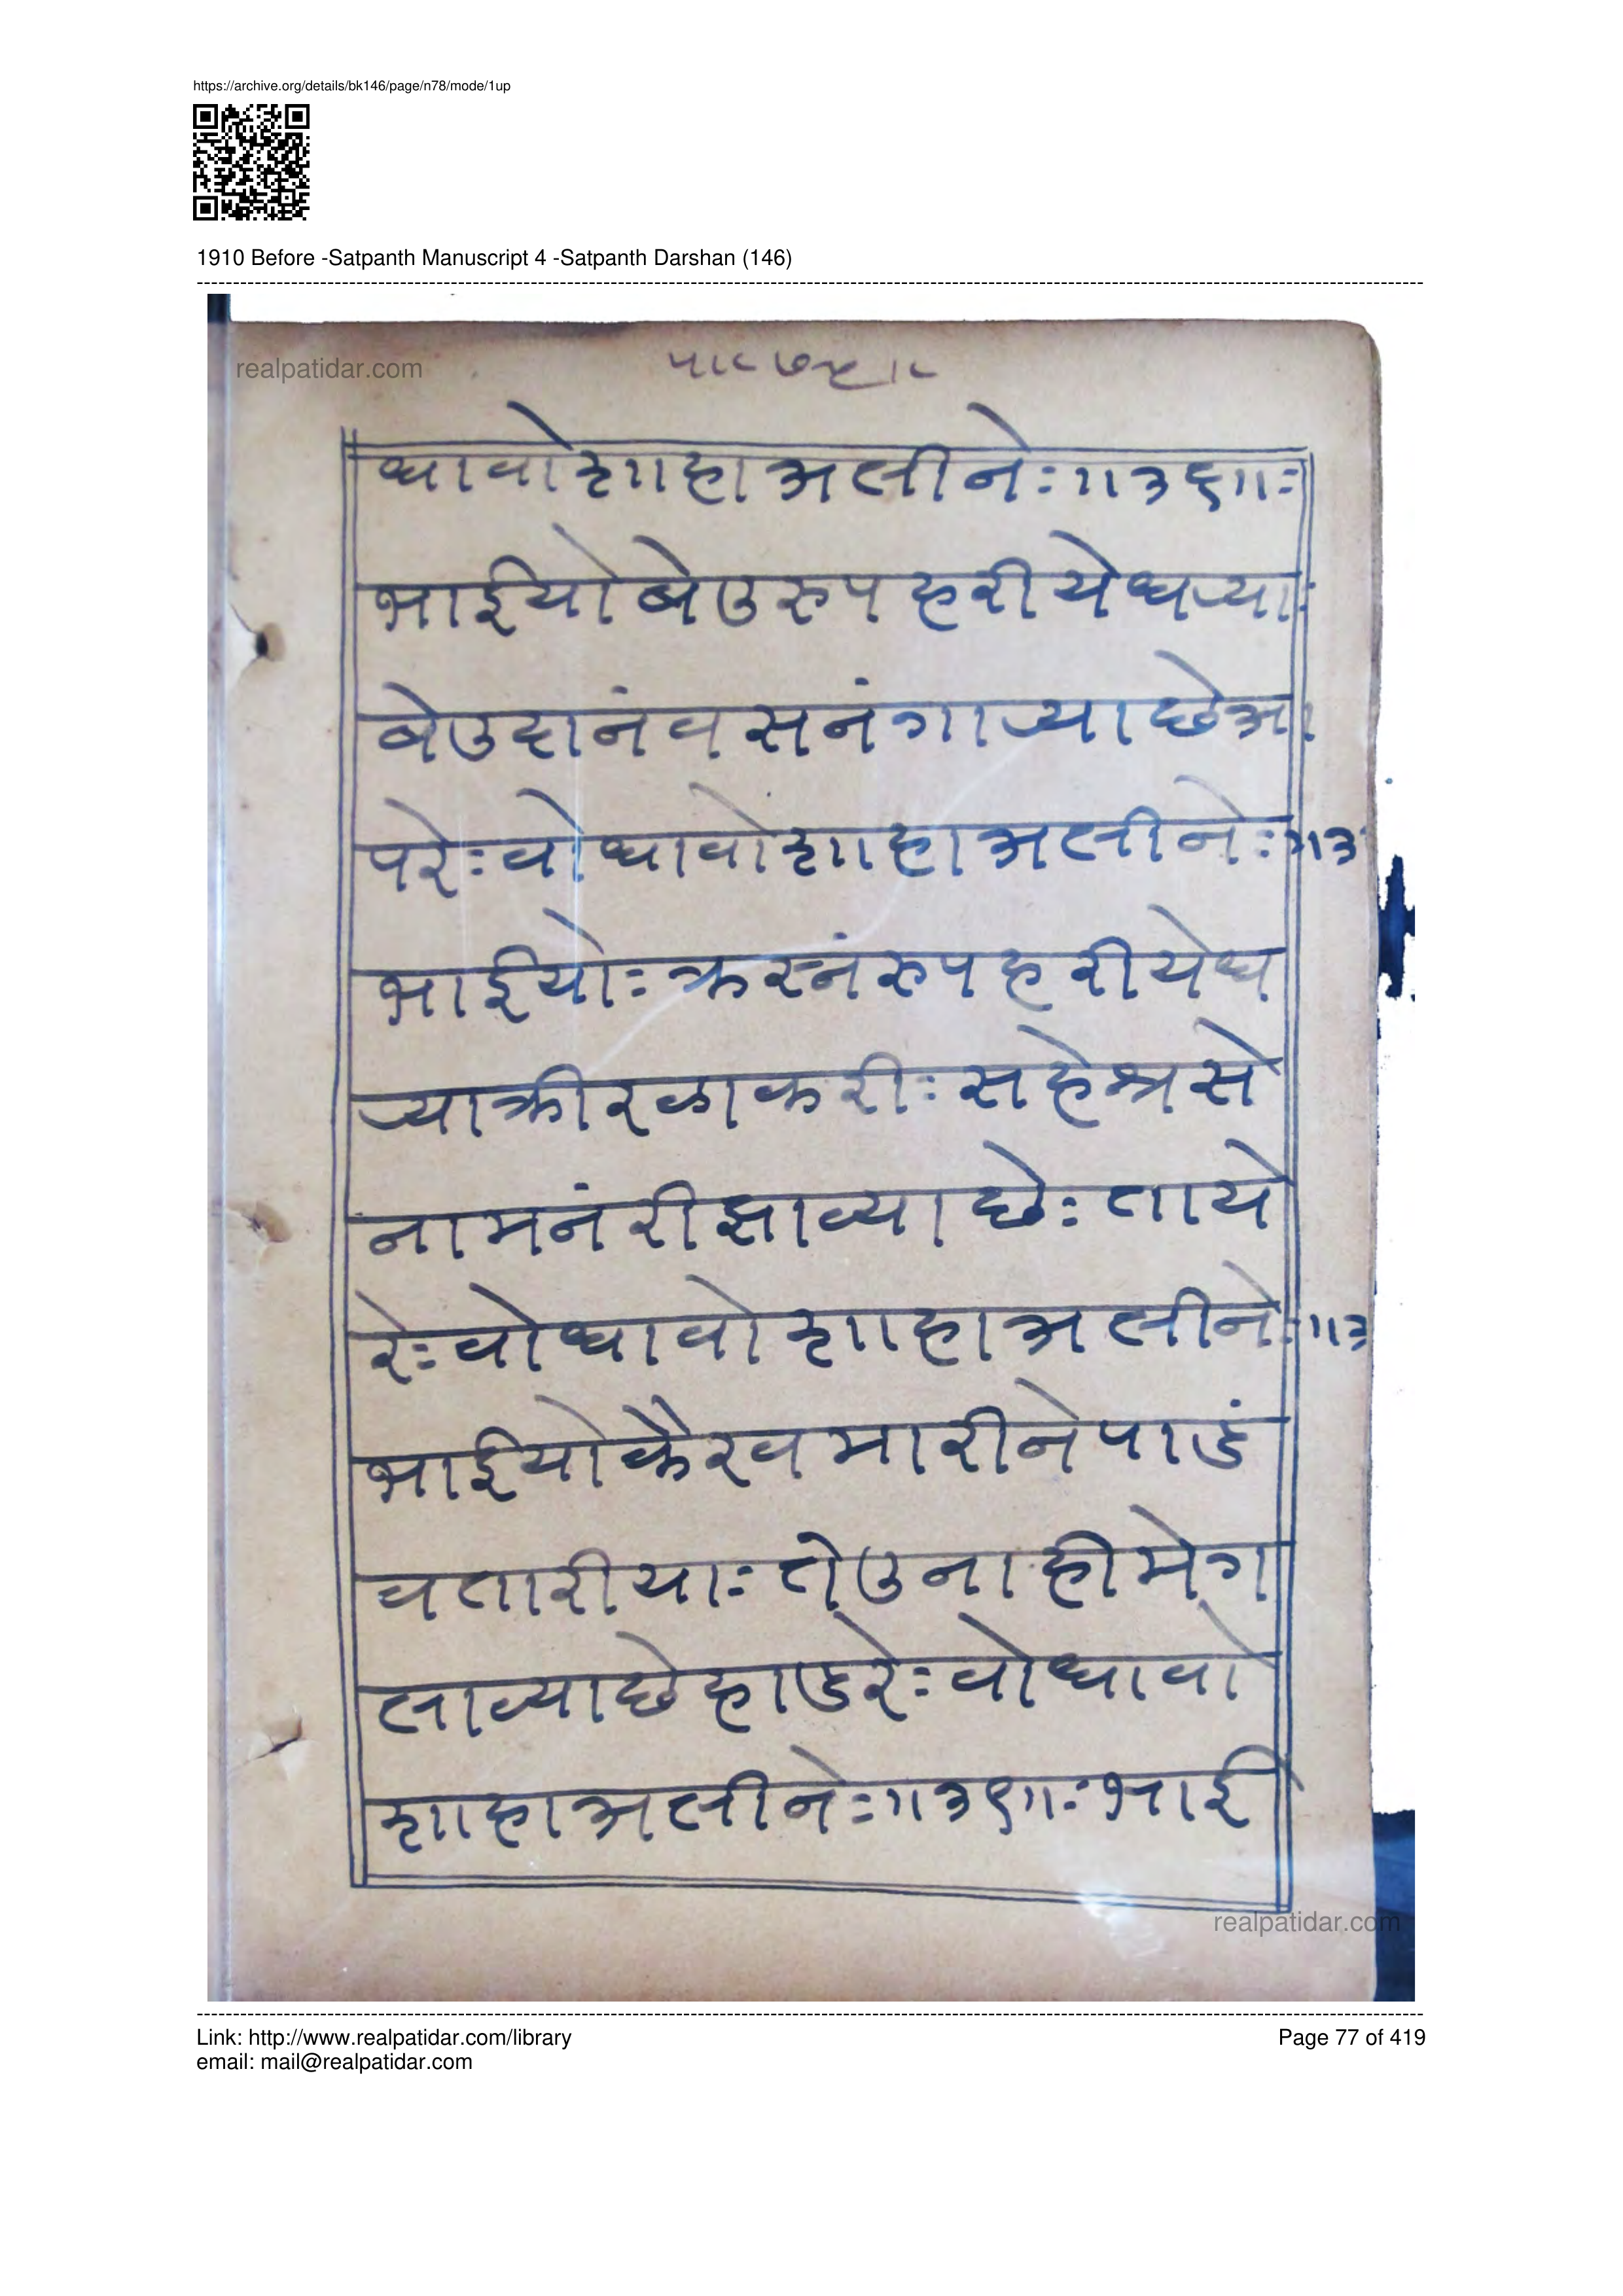 https://archive.org/details/bk146/page/n78/mode/1up
1910 Before -Satpanth Manuscript 4 -Satpanth Darshan (146)
realpatidar.com
ध्यावो शाहा अलीनेः॥३६॥ः
भाईयो बेउ रुप हरीये धर्‍याः
बेउ दानंव सनंगार्‍या छे आ
परेः वो ध्यावो शाहा अलीनेः॥३
भाईयोः क्रस्नं रुप हरीये ध
र्‍या क्रीरळा करीः सहेश्र से
ना मनं रीझाव्या छेः ताये
रेः वो ध्यावो शाहा अलीनेः॥३
भाईयो कैरव मारीने पाडं
व तारीयाः तेउना हीमे ग
लाव्या छे हाड रेः वो ध्यावो
शाहा अलीनेः॥३९॥ः भाई
realpatidar.com
Link: http://www.realpatidar.com/library
Page 77 of 419
email: mail@realpatidar.com